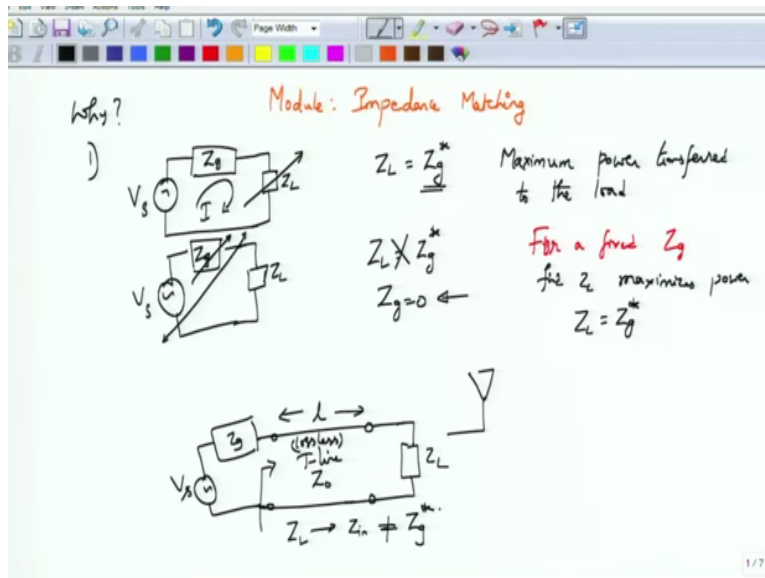 Page Width
Why?
Module: Impedance Matching
1)
Zg
ZL
Vs
I
ZL = Zg*
Maximum power transferred
to the load
Zg
ZL
Vs
ZL Zg*
Zg=0 ←
For a fixed Zg
ZL maximizes power
ZL = Zg*
← l →
Zg
(lossless)
T-line
Z0
ZL
Vs
ZL → Zin ≠ Zg*
1/7